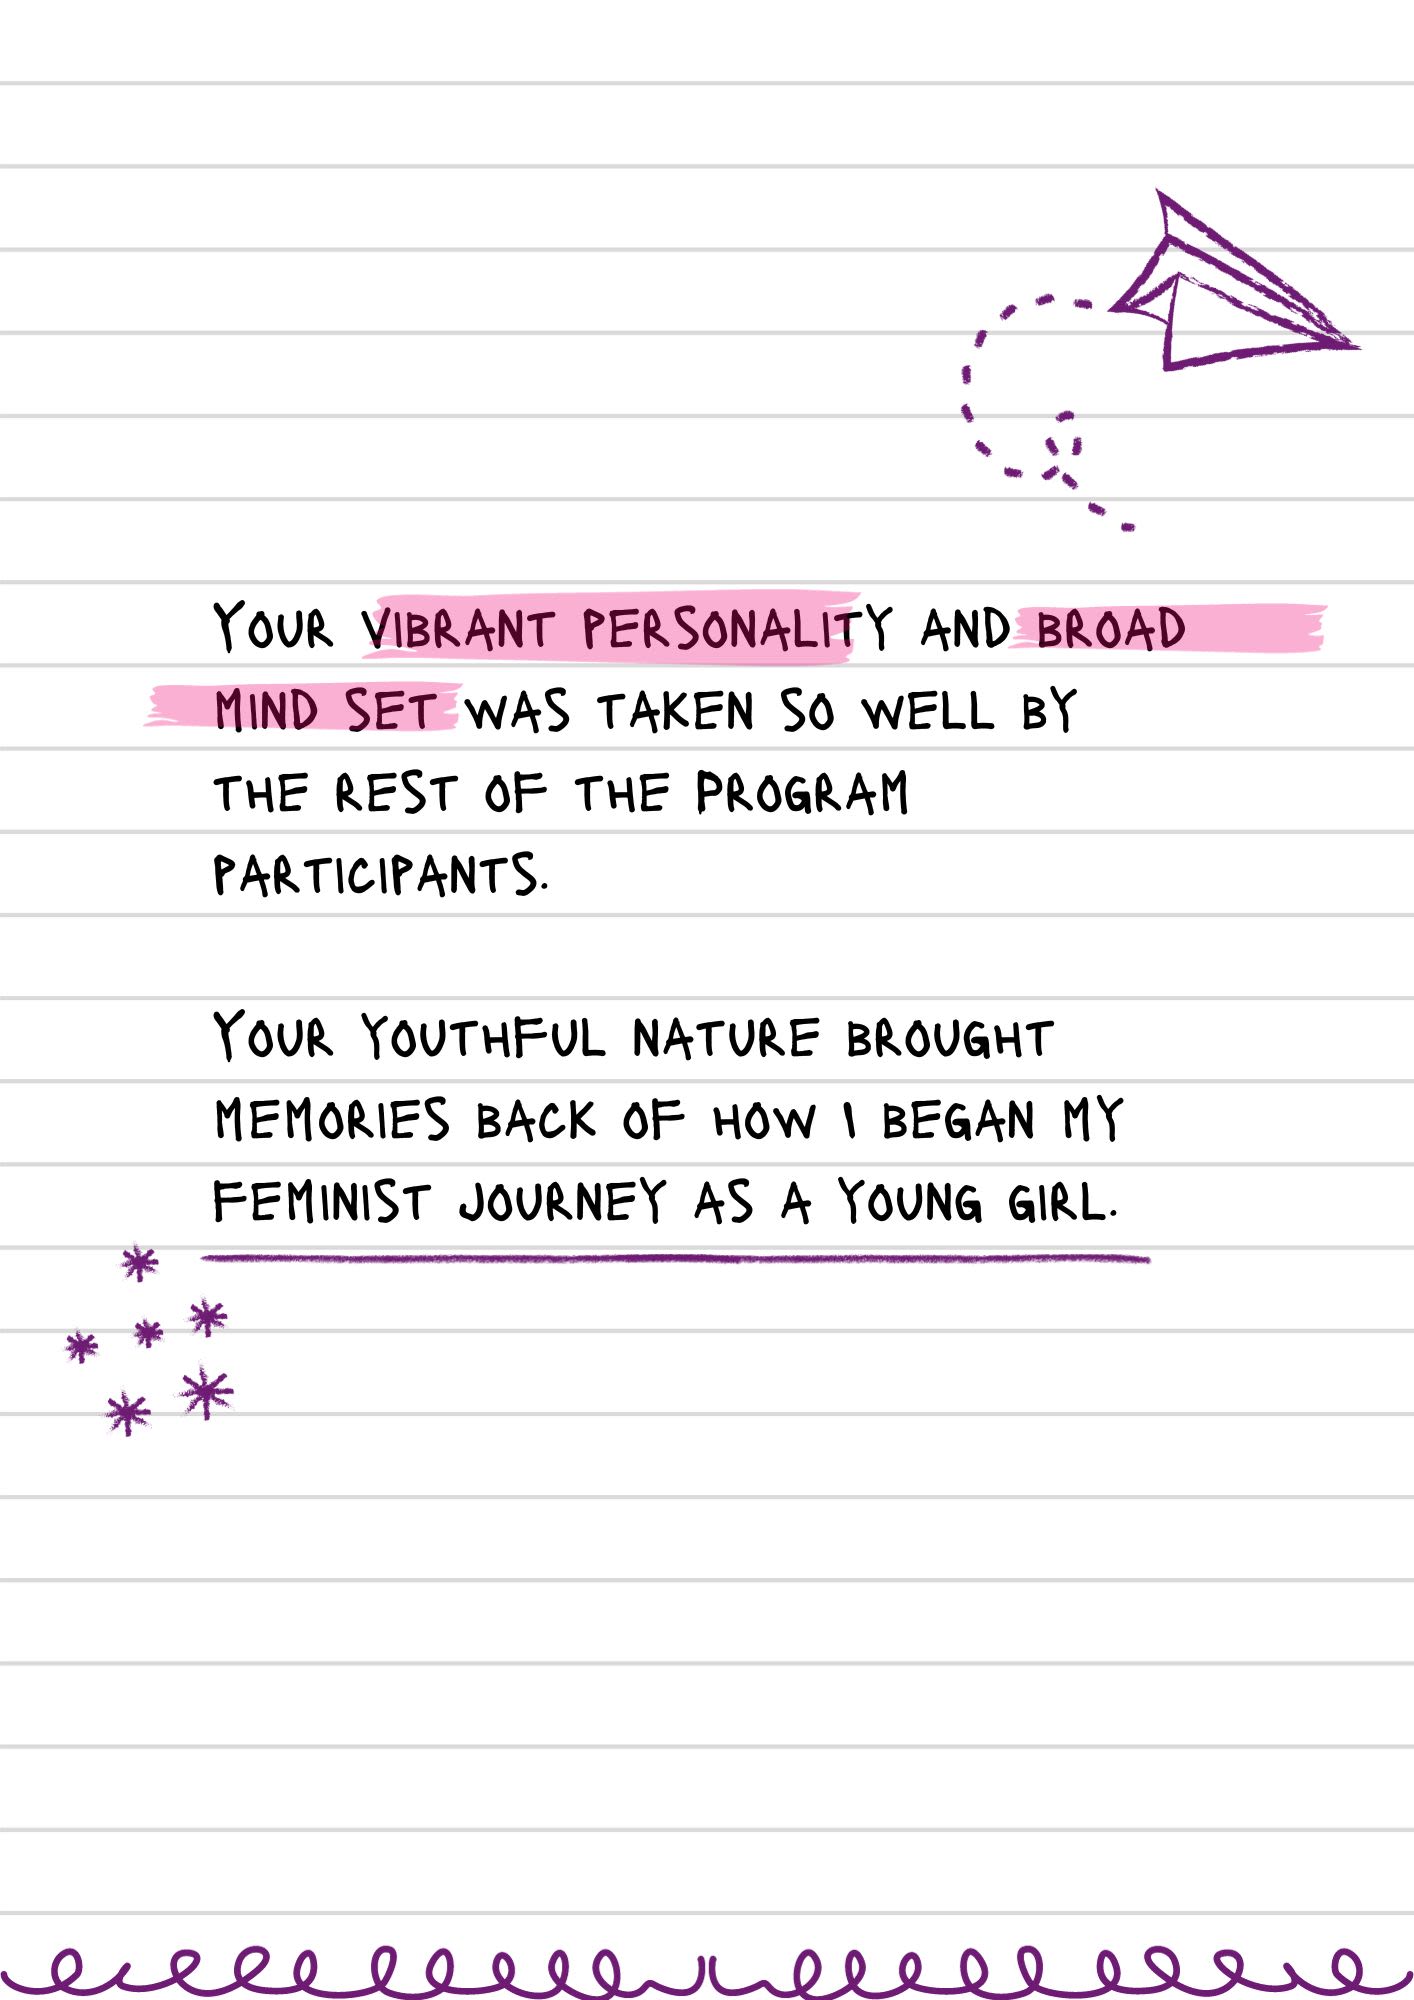 YOUR VIBRANT PERSONALITY AND BROAD
MIND SET WAS TAKEN SO WELL BY
THE REST OF THE PROGRAM
PARTICIPANTS.
YOUR YOUTHFUL NATURE BROUGHT
MEMORIES BACK OF HOW I BEGAN MY
FEMINIST JOURNEY AS A YOUNG GIRL.